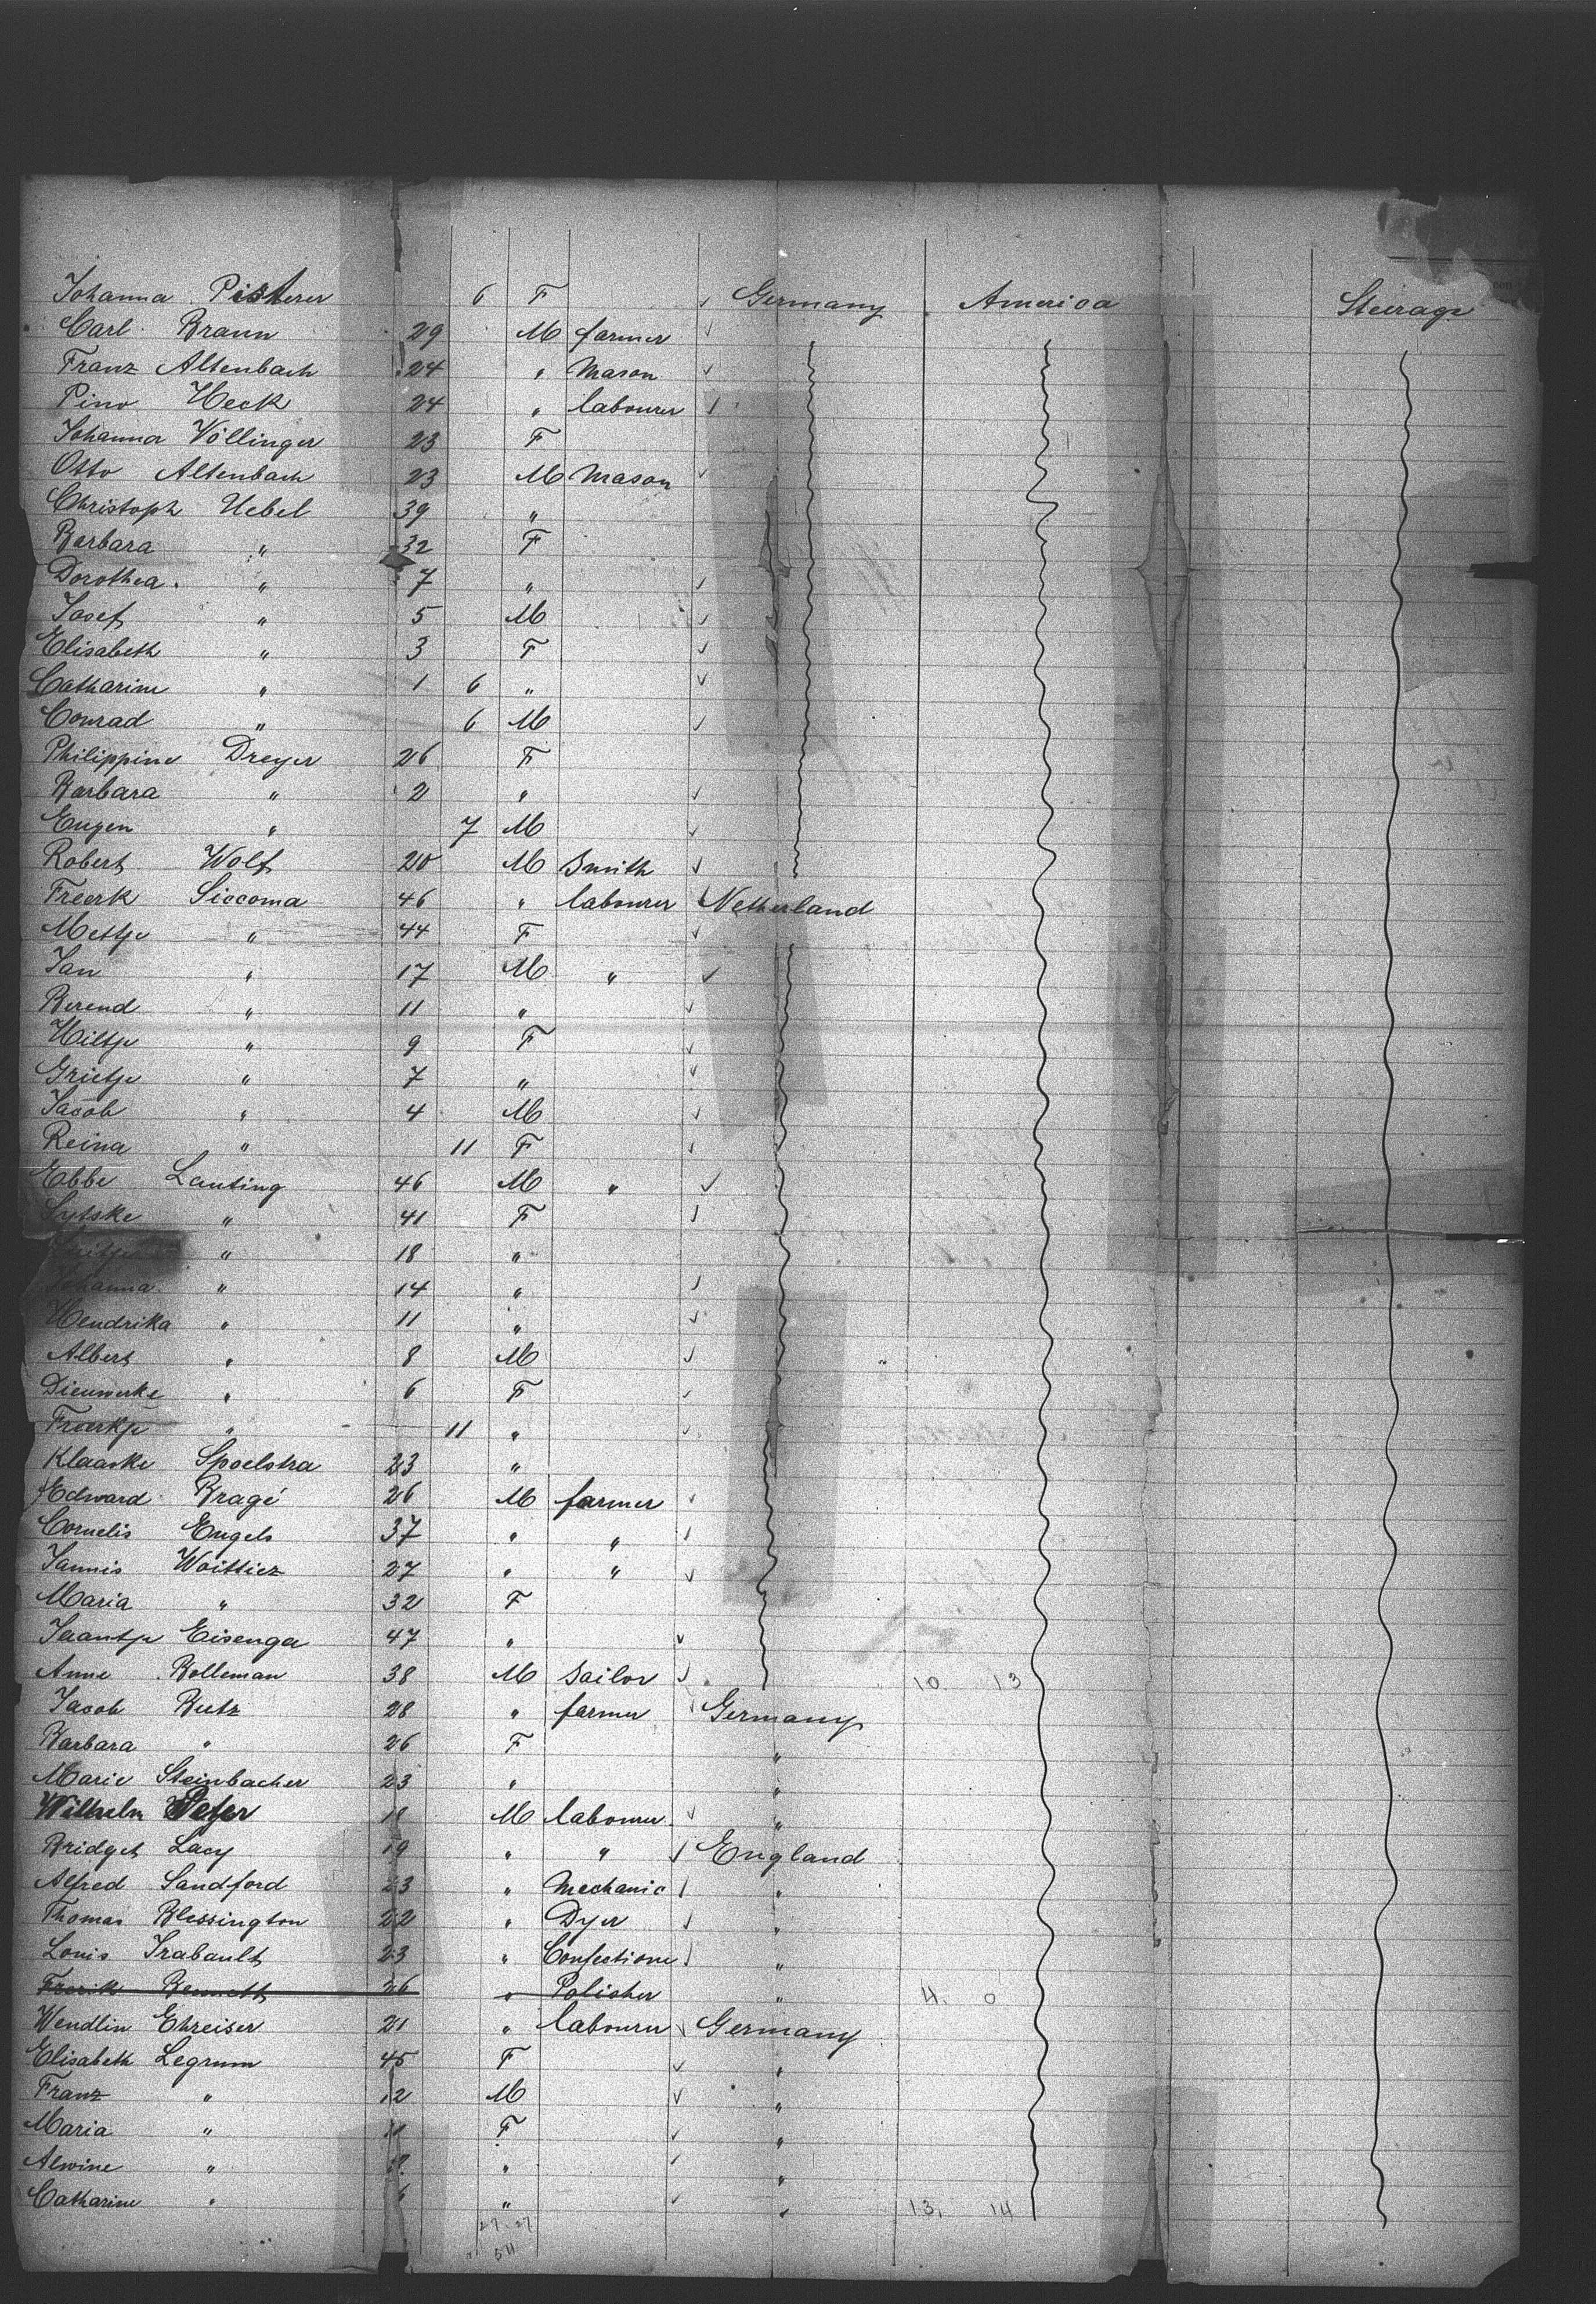 Johanna Pisterer 6 F Germany America Steirage
Carl Braun 29 M farmer
Franz Altenbach 24 " Mason
Pino Heck 24 " labourer
Johanna Völlinger 23 F
Otto Altenbach 23 M Mason
Christoph Uebel 39 "
Barbara " 32 F
Dorothea " 7 "
Josef " 5 M
Elisabeth " 3 F
Catharine " 1 6 "
Conrad " 6 M
Philippine Dreyer 26 F
Barbara " 2 "
Eugen " 7 M
Robert Wolf 20 M Smith
Freerk Siccoma 46 " labourer Netherland
Metje " 44 F
Jan " 17 M "
Berend " 11 "
Hiltje " 9 F
Grietje " 7 "
Jacob " 4 M
Reina " 11 F
Ebbe Lanting 46 M "
Sytske " 41 F
" 18 "
Johanna " 14 "
Hendrika " 11 "
Albert " 8 M
Dieuwerke " 6 F
Freerkje " 11 "
Klaaske Spoelstra 23 "
Edward Bragé 26 M farmer
Cornelis Engels 37 " "
Jannis Woittiez 27 " "
Maria " 32 F
Jaantje Eisenga 47 "
Anne Bolleman 38 M Sailor 10 13
Jacob Butz 28 " farmer Germany
Barbara " 26 F "
Marie Steinbacher 23 " "
Wilhelm 18 M labourer "
Bridget Lacy 19 " " England
Alfred Sandford 23 " Mechanic "
Thomas Blessington 22 " Dyer "
Louis Trabault 23 " Confectione "
Bennett 26 " Polisher " 4. 0
Wendlin Ehreiser 21 " labourer Germany
Elisabeth Legrum 45 F "
Franz " 12 M "
Maria " 11 F "
Alwine " " "
Catharine " 6 " " 13. 14
27 27